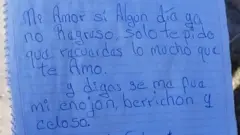 Mi Amor si Algun dia ya
no Regreso. Solo te pido
que recuerdas lo mucho que
te Amo.
y digas se me fue
mi enojon, berrichon y
celoso.